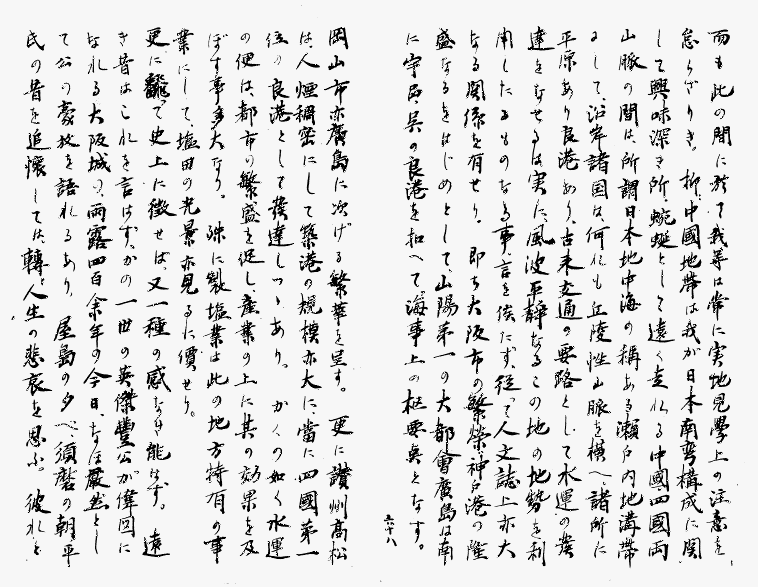 而も此の間に於て我等は常に実地見學上の注意を
怠らざりき。抑、中國地帶は我が日本南彎構成に関
して興味深き所、蜿蜒として遠く走れる中國、四國両
山脈の間は、所謂日本地中海の稱ある瀬戸内地溝帶
にして、沿岸諸国は、何れも丘陵性山脈を横へ、諸所に
平原あり良港あり、古来交通の要路として水運の発
達をなせるは実に、風波平靜なるこの地の地勢を利
用したるものなる事、言を俟たず、従つて人文誌上亦大
なる関係を有せり。即ち大阪市の繁榮、神戸港の隆
盛なるをはじめとして、山陽第一の大都會廣島は南
に宇品、呉の良港を扣へて、海事上の枢要奌となす。
六十八
岡山市亦廣島に次げる繁華を呈す。更に讃州高松
は、人煙稠密にして築港の規模亦大に、當に四國第一
位の良港として発達しつゝあり。かくの如く水運
の便は、都市の繁盛を促し、産業の上に其の効果を及
ぼす事多大なり。殊に製塩業は此の地方特有の事
業にして、塩田の光景亦見るに價せり。
更に飜て史上に徴せば、又一種の感なき能はず。遠
き昔はこれを言はず、かの一世の英傑豊公が偉図に
なれる大阪城の、雨露四百余年の今日、なほ嚴然とし
て公の豪放を語れるあり、屋島の夕べ、須磨の朝、平
氏の昔を追懐しては、轉、人生の悲哀を思ふ。彼れと